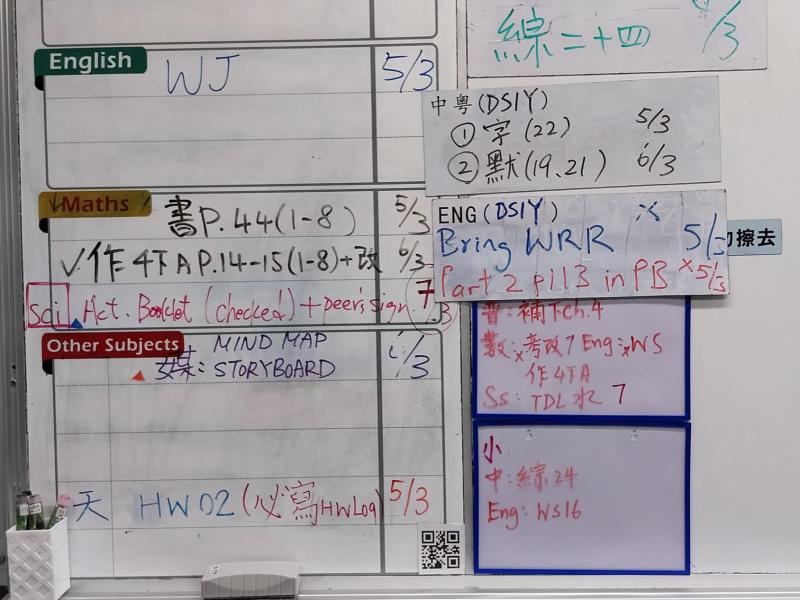 English
WJ 5/3
Maths
書P.44(1-8) 5/3
✓作4下A P.14-15(1-8)+改 6/3
Sci Act. Booklet (checked) + peer's sign. 7/3
Other Subjects
媒: MIND MAP
STORYBOARD 6/3
天 HW02 (必寫HWLog) 5/3
綜二十四 /3
中粵(DSIY)
① 字(22) 5/3
② 默(19、21) 6/3
ENG (DSIY)
Bring WRR 5/3
Part 2 p113 in PB ×5/3
擦去
普:補下ch.4
數:×考改7 Eng:×WS
作4下A
Ss: TDL水 7
小
中:綜24
Eng: WS16